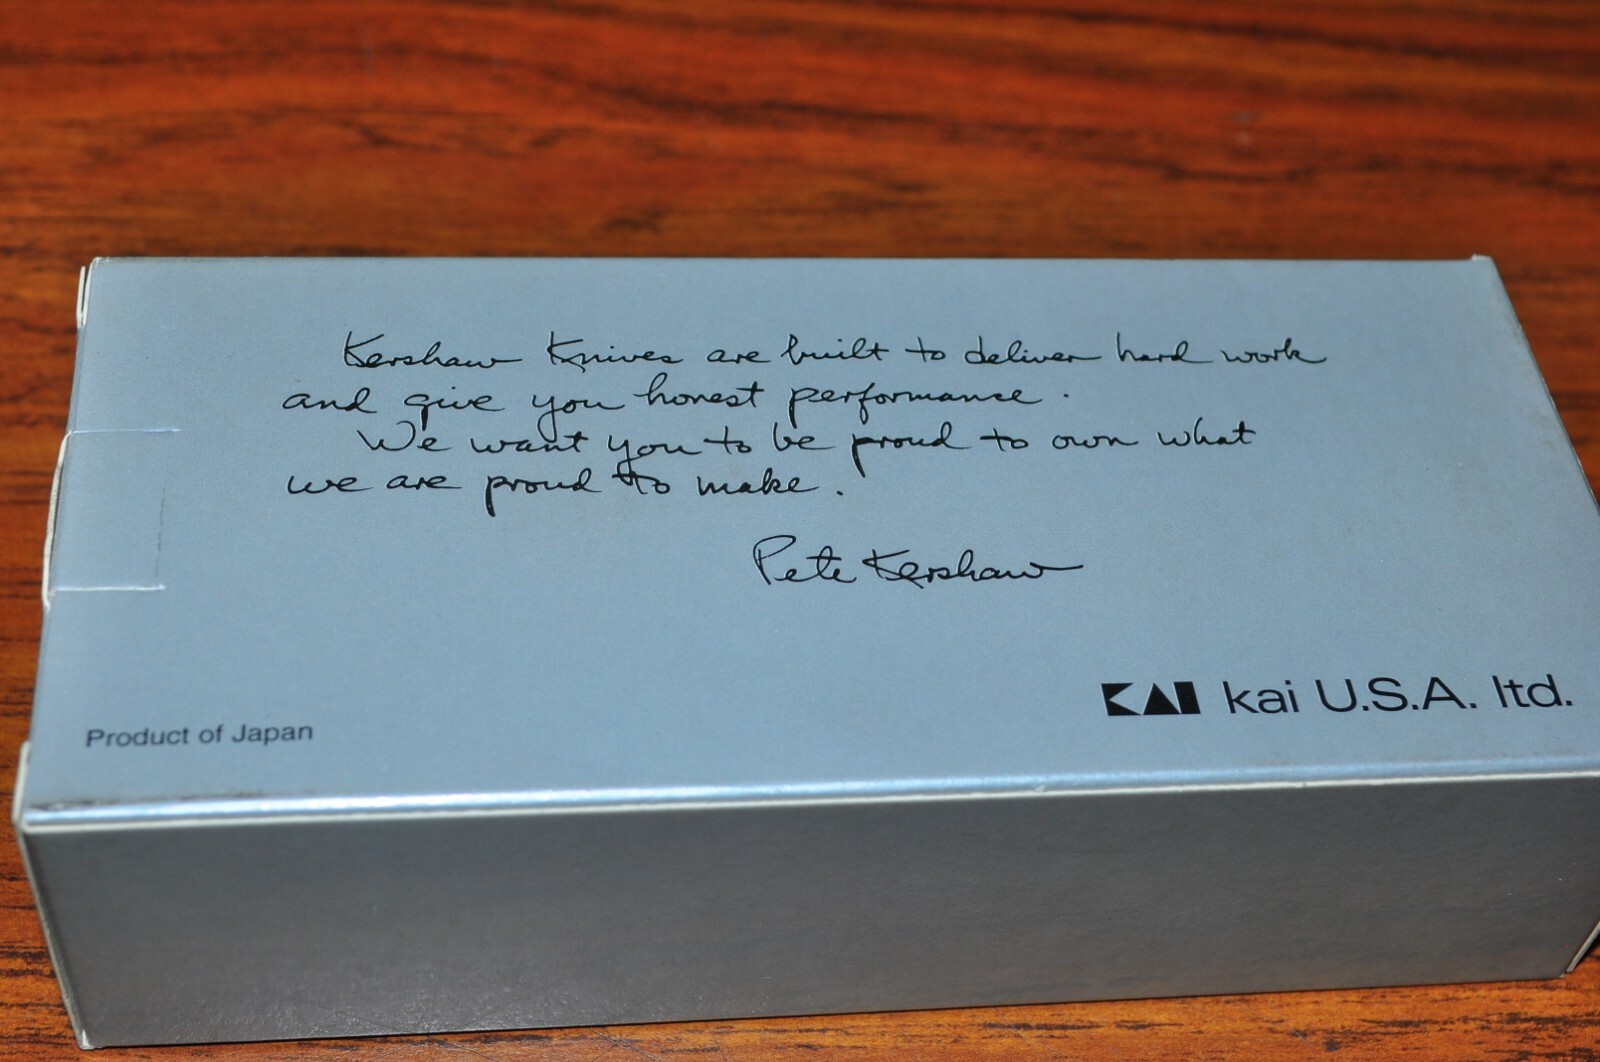 Kershaw Knives are built to deliver hard work
and give you honest performance.
We want you to be proud to own what
we are proud to make.
Pete Kershaw
KAI kai U.S.A. ltd.
Product of Japan